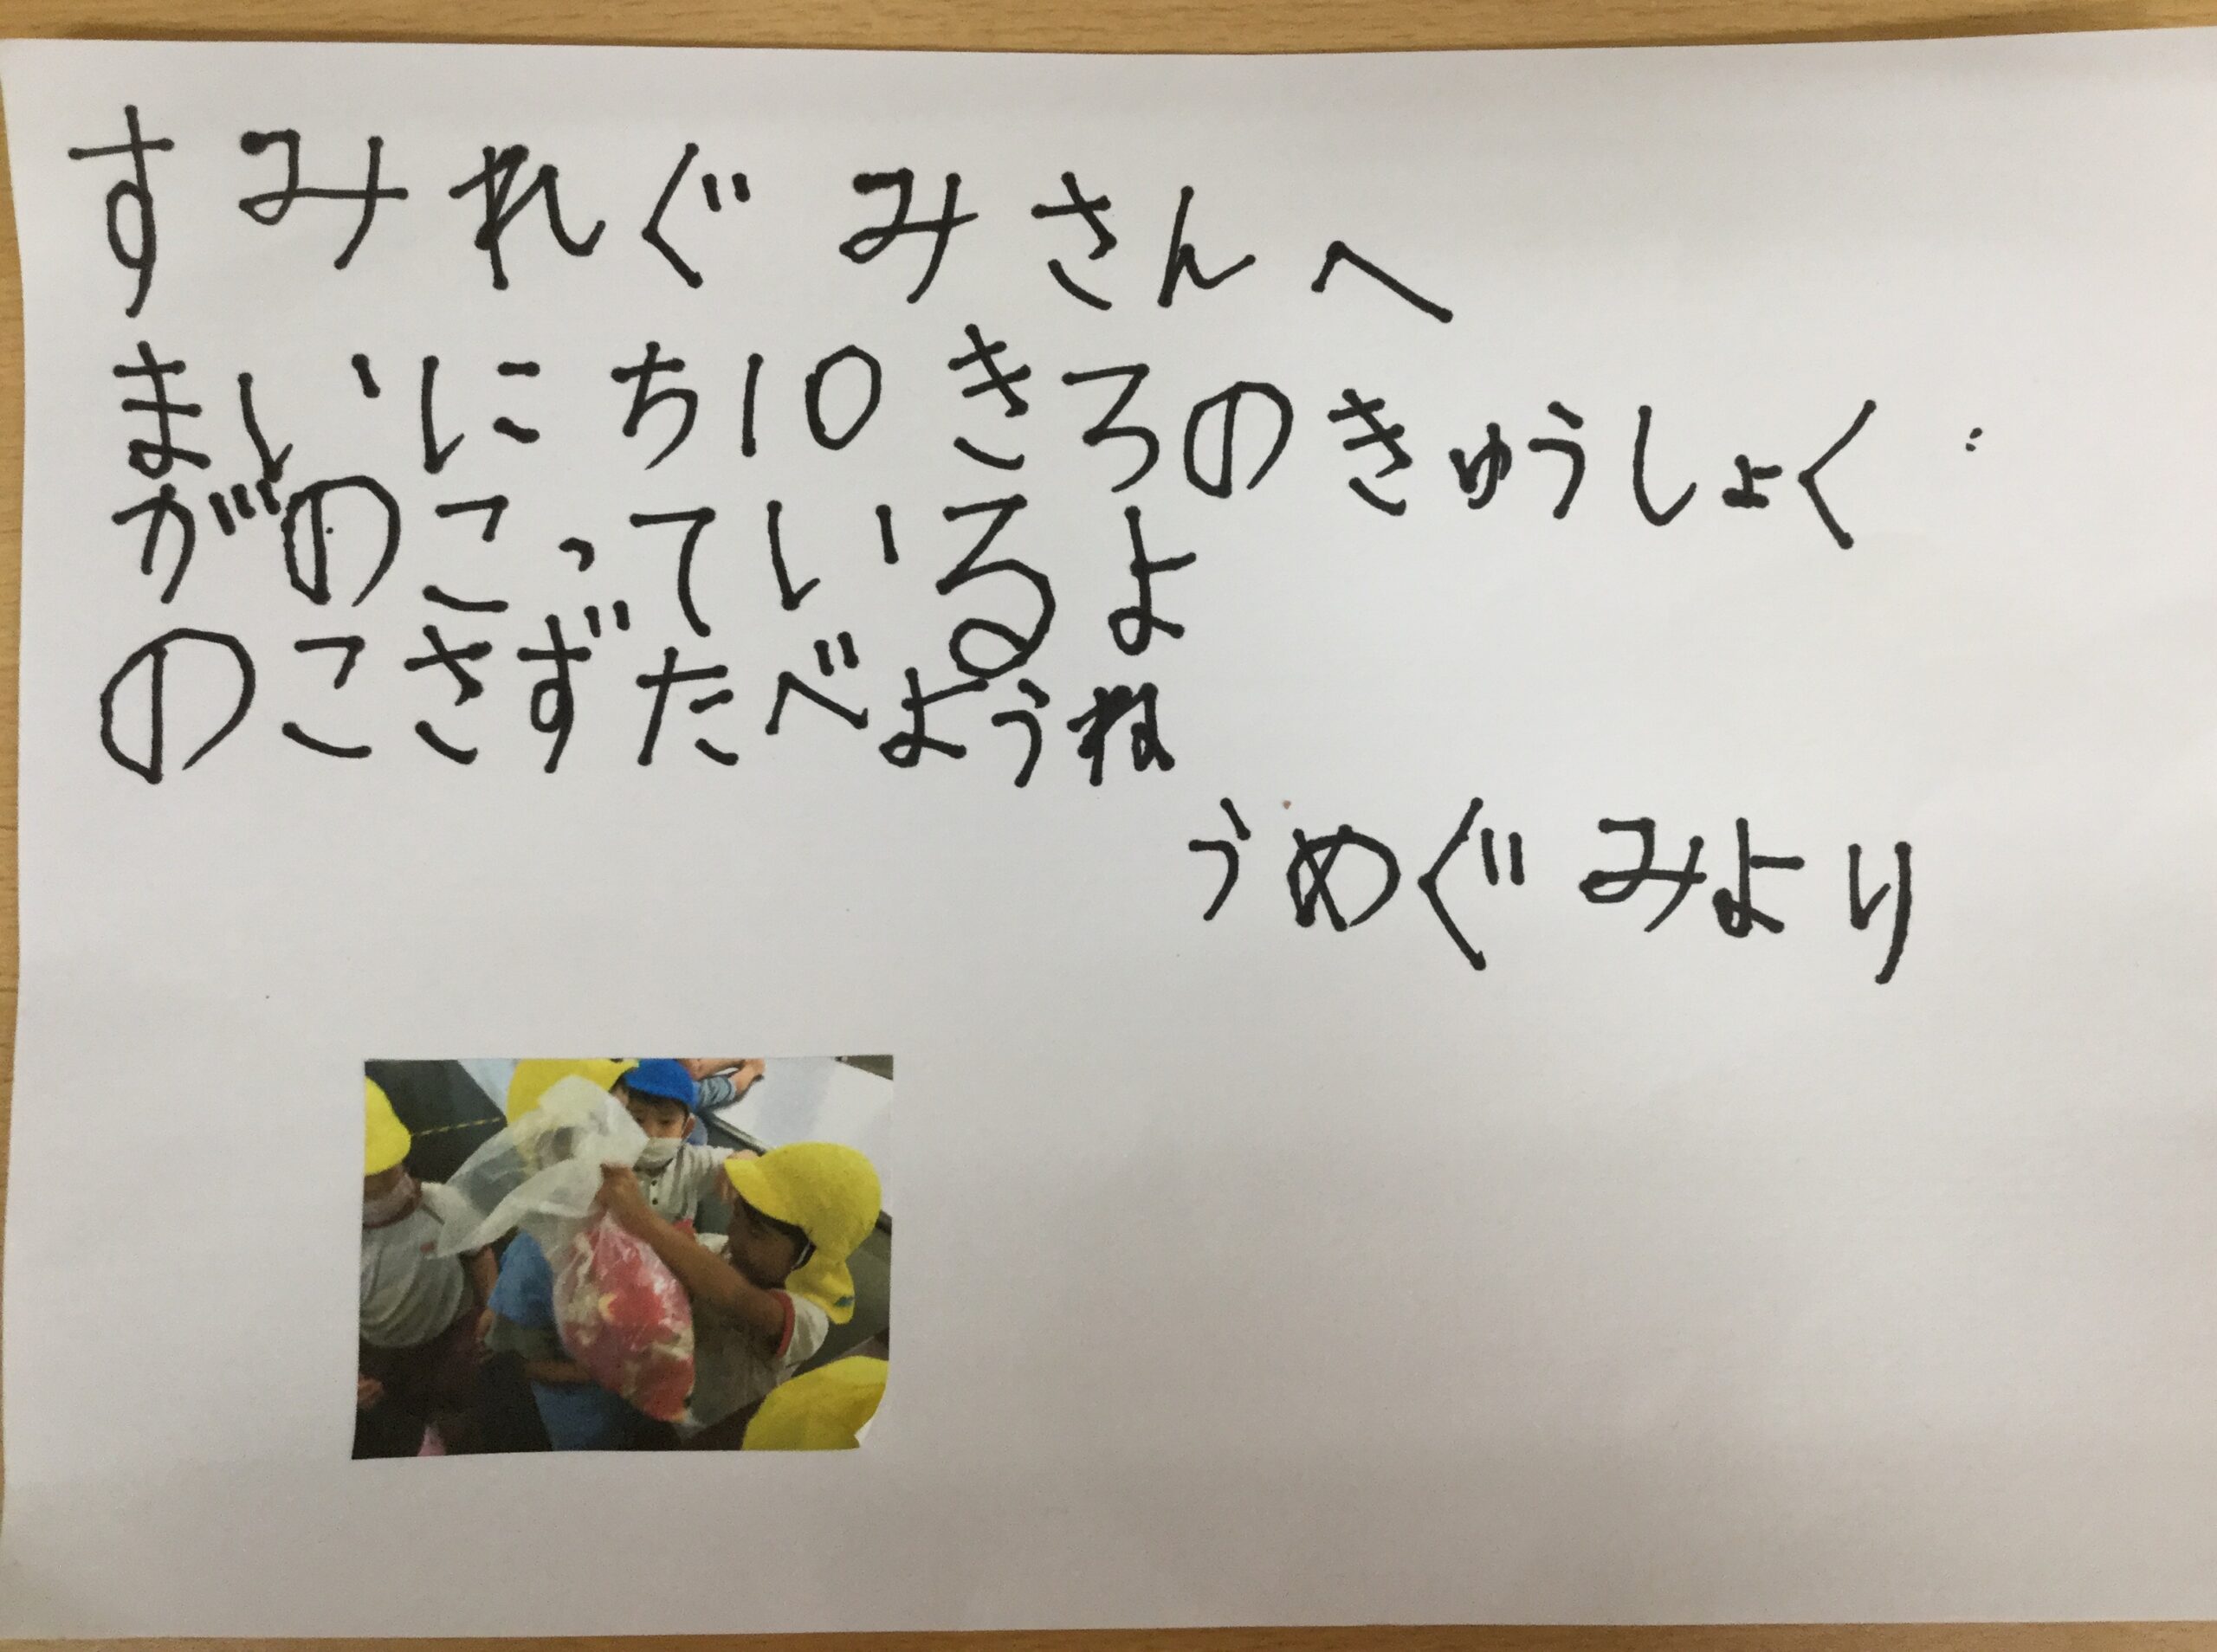 すみれぐみさんへ
まいにち10きろのきゅうしょく
がのこっているよ
のこさずたべようね
うめぐみより